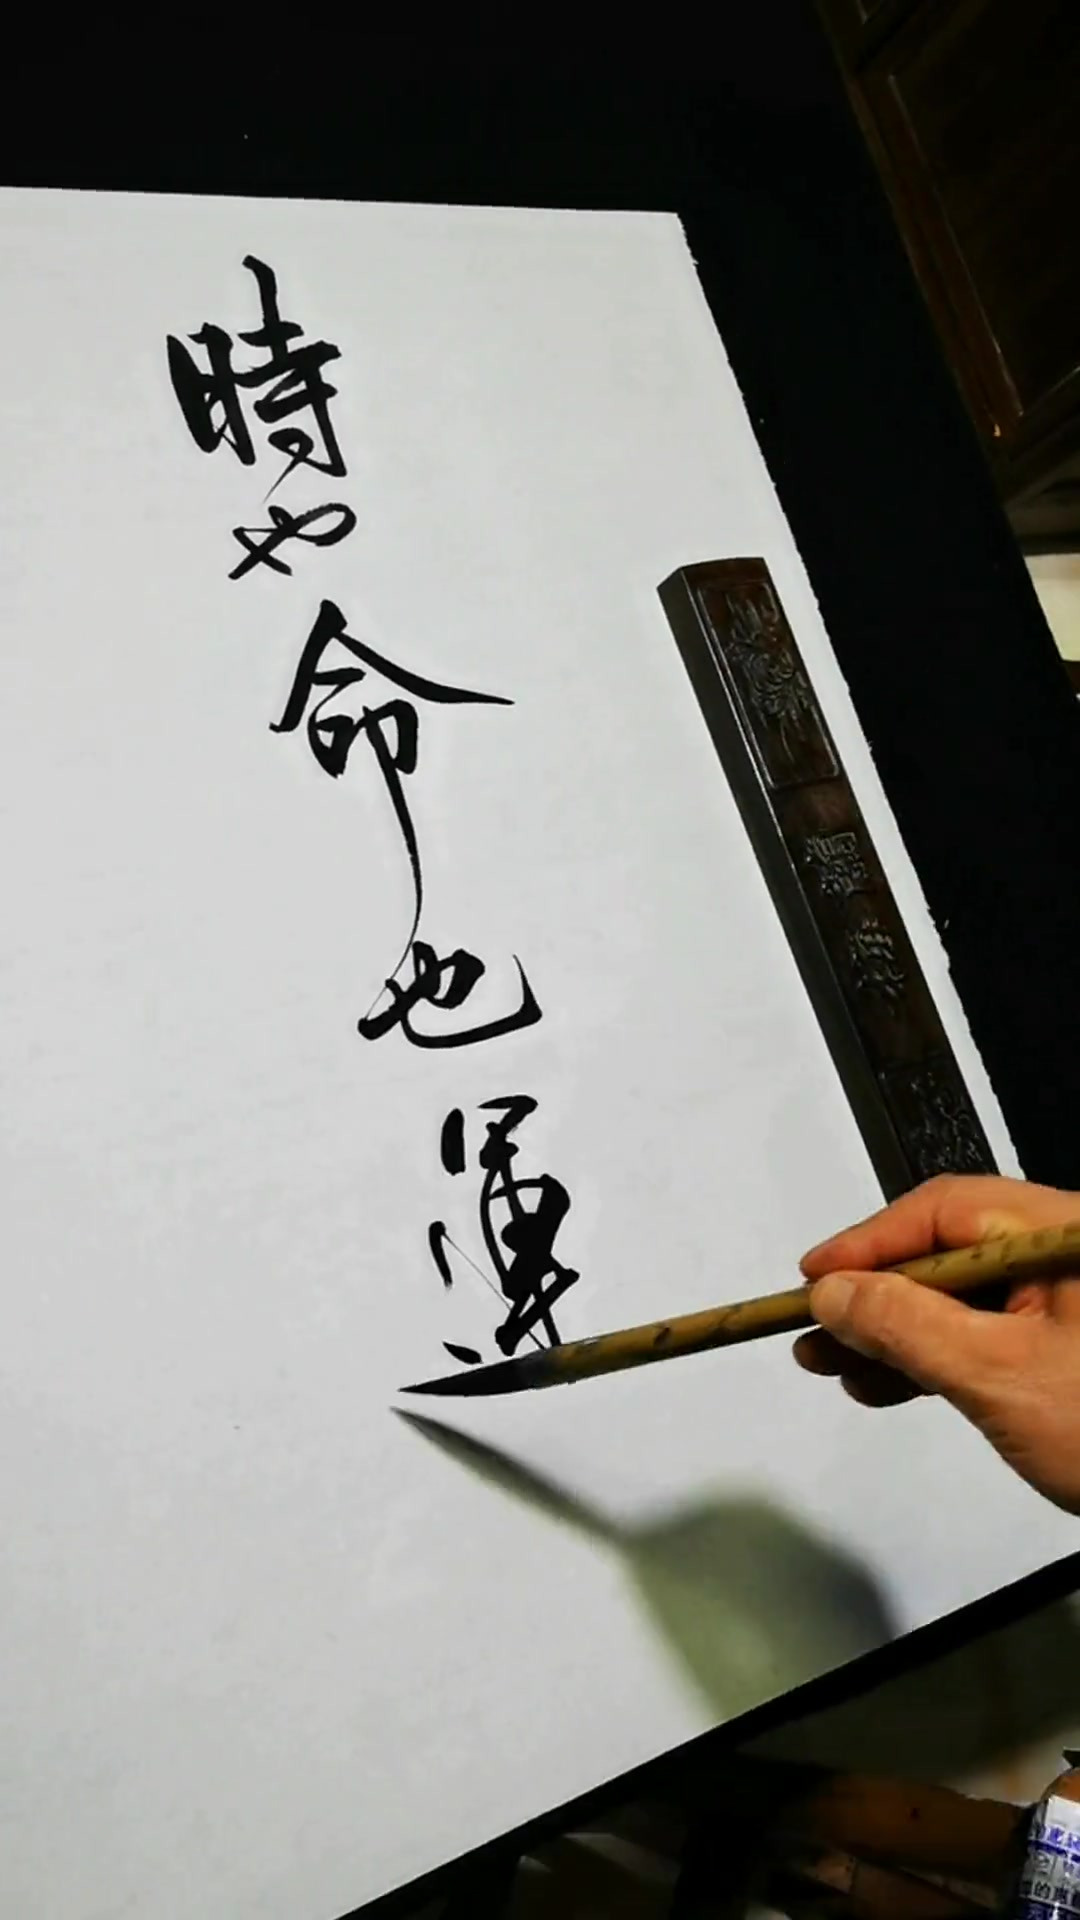 時也命也運